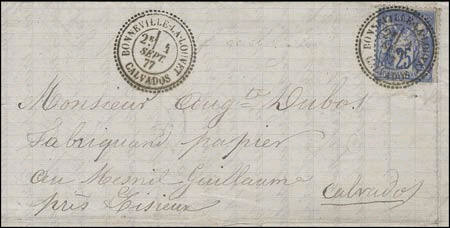 BONNEVILLE-LA-LOUVET
2E
4
SEPT.
77
CALVADOS
25
Monsieur Aug.te Dubos
Fabriquand papier
au Mesnil-Guillaume
près Lisieux
Calvados